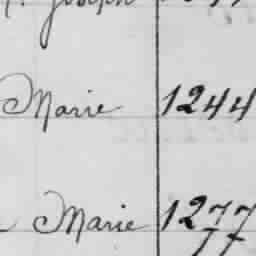 Joseph
Marie 1244
Marie 1277